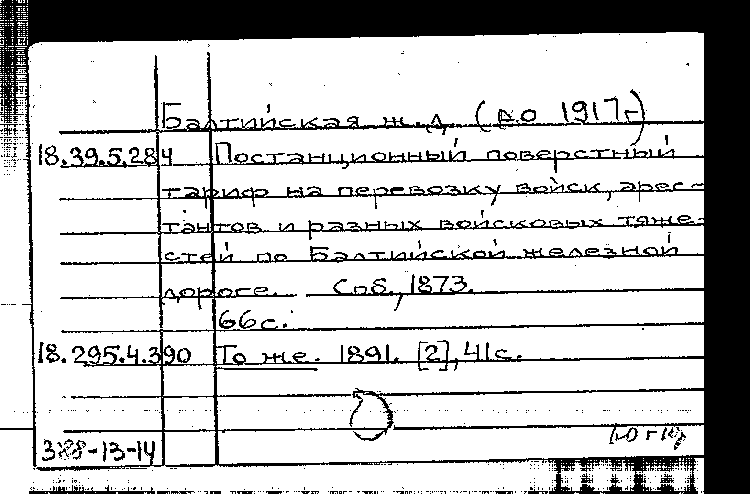 Балтийская ж.д. (до 1917г)
18.39.5.284 Постанционный поверстный
тариф на перевозку войск, арес-
тантов и разных войсковых тяже-
стей по Балтийской железной
дороге. Спб., 1873.
66с.
18.295.4.390 То же. 1891. [2], 41с.
-13-14